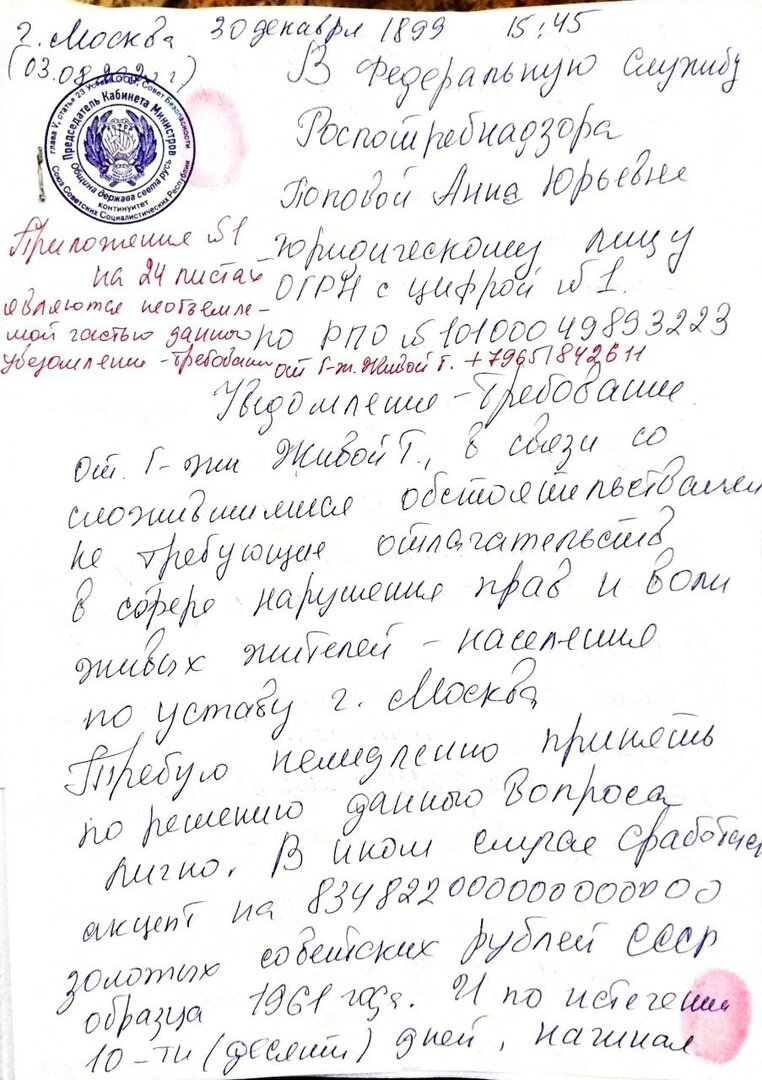 г. Москва 30 декабря 1899 15:45
(03.08.2020 г)
В Федеральную Службу
Роспотребнадзора
Поповой Анна Юрьевне
юридическому лицу
ОГРН с цифрой №1.
по РПО №10100049893223
от Г-ж. Живой Т. +79651842611
глава V, статья 23 Совет Безопасности
Председатель Кабинета Министров
Община держава света русь
континуитет
Союз Советских Социалистических Республик
Приложение №1
на 24 листах
являются неотъемле-
мой частью данного
уведомлении-Требовании
Уведомление-Требование
от. Г-жи Живой Т., в связи со
сложившимися обстоятельствами
не требующие отлагательств
в сфере нарушения прав и воли
живых жителей - населения
по уставу г. Москва
Требую немидленно принять
по решению данного Вопроса
лично. В ином случае сработает
акцепт на 834822000000000000
золотых советских рублей СССР
образца 1961 года. И по истечении
10-ти (десяти) дней, начиная